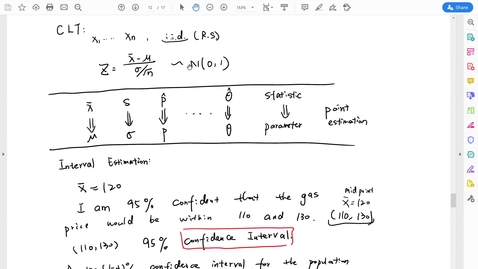 CLT:
x₁, .... xn , i.i.d. (R.S)
Z = x̄ - μ / σ/√n ~ N(0,1)
x̄ s p̂ .... θ̂ statistic
⇓ ⇓ ⇓ ⇓ ⇓ point estimation
μ σ p θ parameter
Interval Estimation:
x̄ = 120
I am 95% confident that the gas
price would be within 110 and 130.
midpoint
x̄ = 120
(110, 130)
(110, 130) 95% Confidence Interval.
confidence interval for the population